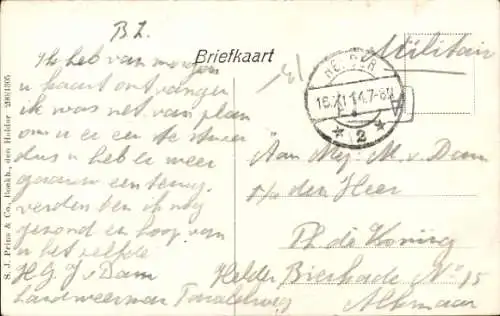 B.L.
Briefkaart
Militair
HELDER
16.XI.14.7-8N
* 2 *
Ik heb van morgen
u kaart ontvangen
ik was net van plan
om u er een te sturen
dus u heb er weer
gauw een terug
verders ben ik nog
gezond en hoop van
u het zelfde
H. G. J v Dam
Landweerman
Aan Mej. M. v. Dam
p/a den Heer
Ph. de Koning
Bierkade No 15
Alkmaar
Helder
S. J. Prins & Co., Boekh., den Helder